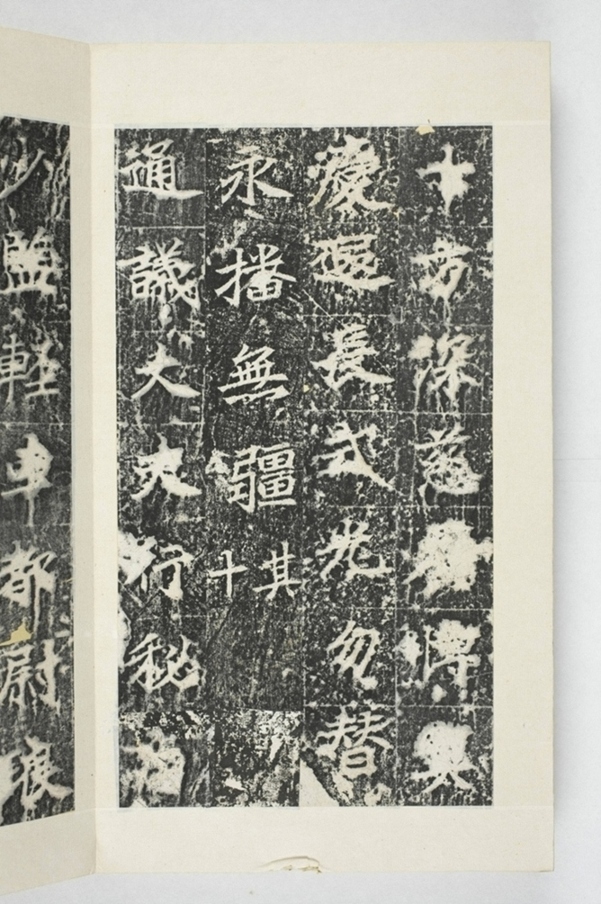 十方深慈
遐長式光勿替
永播無疆其十
通議大夫行秘
少監輕車都尉琅